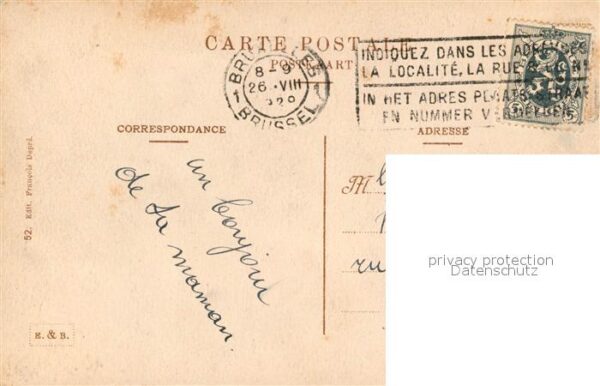 CARTE POSTALE
POSTKAART
BRUXELLES
8-9
26 VIII
1 1
BRUSSEL
INDIQUEZ DANS LES ADRESSES
LA LOCALITÉ, LA RUE &
IN HET ADRES PLAATS, STRAAT
EN NUMMER VERMELDEN
CORRESPONDANCE
ADRESSE
un bonjour
de ta maman
M
ru
privacy protection
Datenschutz
52. Edit. François Deprel.
E. & B.